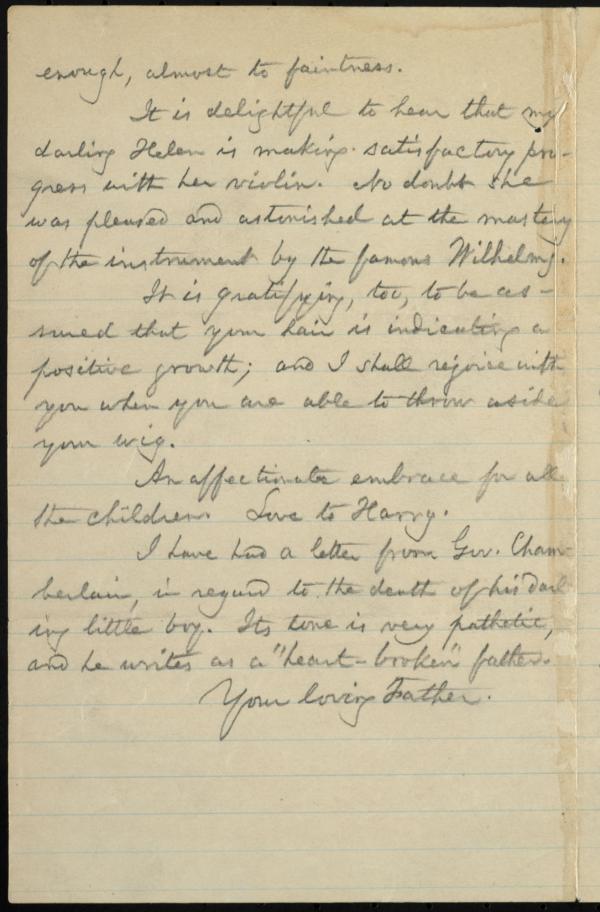 enough, almost to faintness.
It is delightful to hear that my
darling Helen is making satisfactory pro-
gress with her violin. No doubt she
was pleased and astonished at the mastery
of the instrument by the famous Wilhelmj.
It is gratifying, too, to be as-
sured that your hair is indicating a
positive growth; and I shall rejoice with
you when you are able to throw aside
your wig.
An affectionate embrace for all
the children. Love to Harry.
I have had a letter from Gov. Cham-
berlain, in regard to the death of his darl
ing little boy. Its tone is very pathetic,
and he writes as a "heart-broken" father.
Your loving Father.